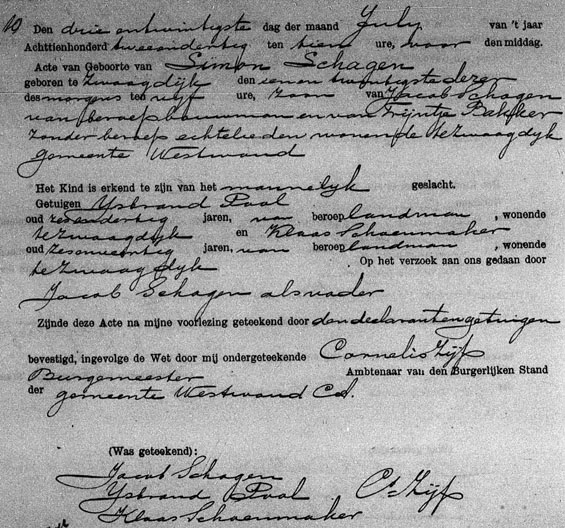 10 Den drie entwintigste dag der maand July van 't jaar
Achttienhonderd tweeendertig ten tien ure, voor den middag.
Acte van Geboorte van Simon Schagen
geboren te Zwaagdyk den een en twintigste dezer
des morgens ten vyf ure, zoon van Jacob Schagen
van beroep bouwman en van Trijntje Bakker
zonder beroep echtelieden wonende te Zwaagdyk
gemeente Westwoud
Het Kind is erkend te zijn van het mannelyk geslacht.
Getuigen Ysbrand Pool
oud zesendertig jaren, van beroep landman , wonende
te Zwaagdyk en Klaas Schoenmaker
oud zesenveertig jaren, van beroep landman , wonende
te Zwaagdyk Op het verzoek aan ons gedaan door
Jacob Schagen als vader
Zijnde deze Acte na mijne voorlezing geteekend door den declarant en getuigen
bevestigd, ingevolge de Wet door mij ondergeteekende Cornelis Zijp
Burgemeester Ambtenaar van den Burgerlijken Stand
der gemeente Westwoud Ca.
(Was geteekend):
Jacob Schagen
Ysbrand Pool Cs Zijp
Klaas Schoenmaker